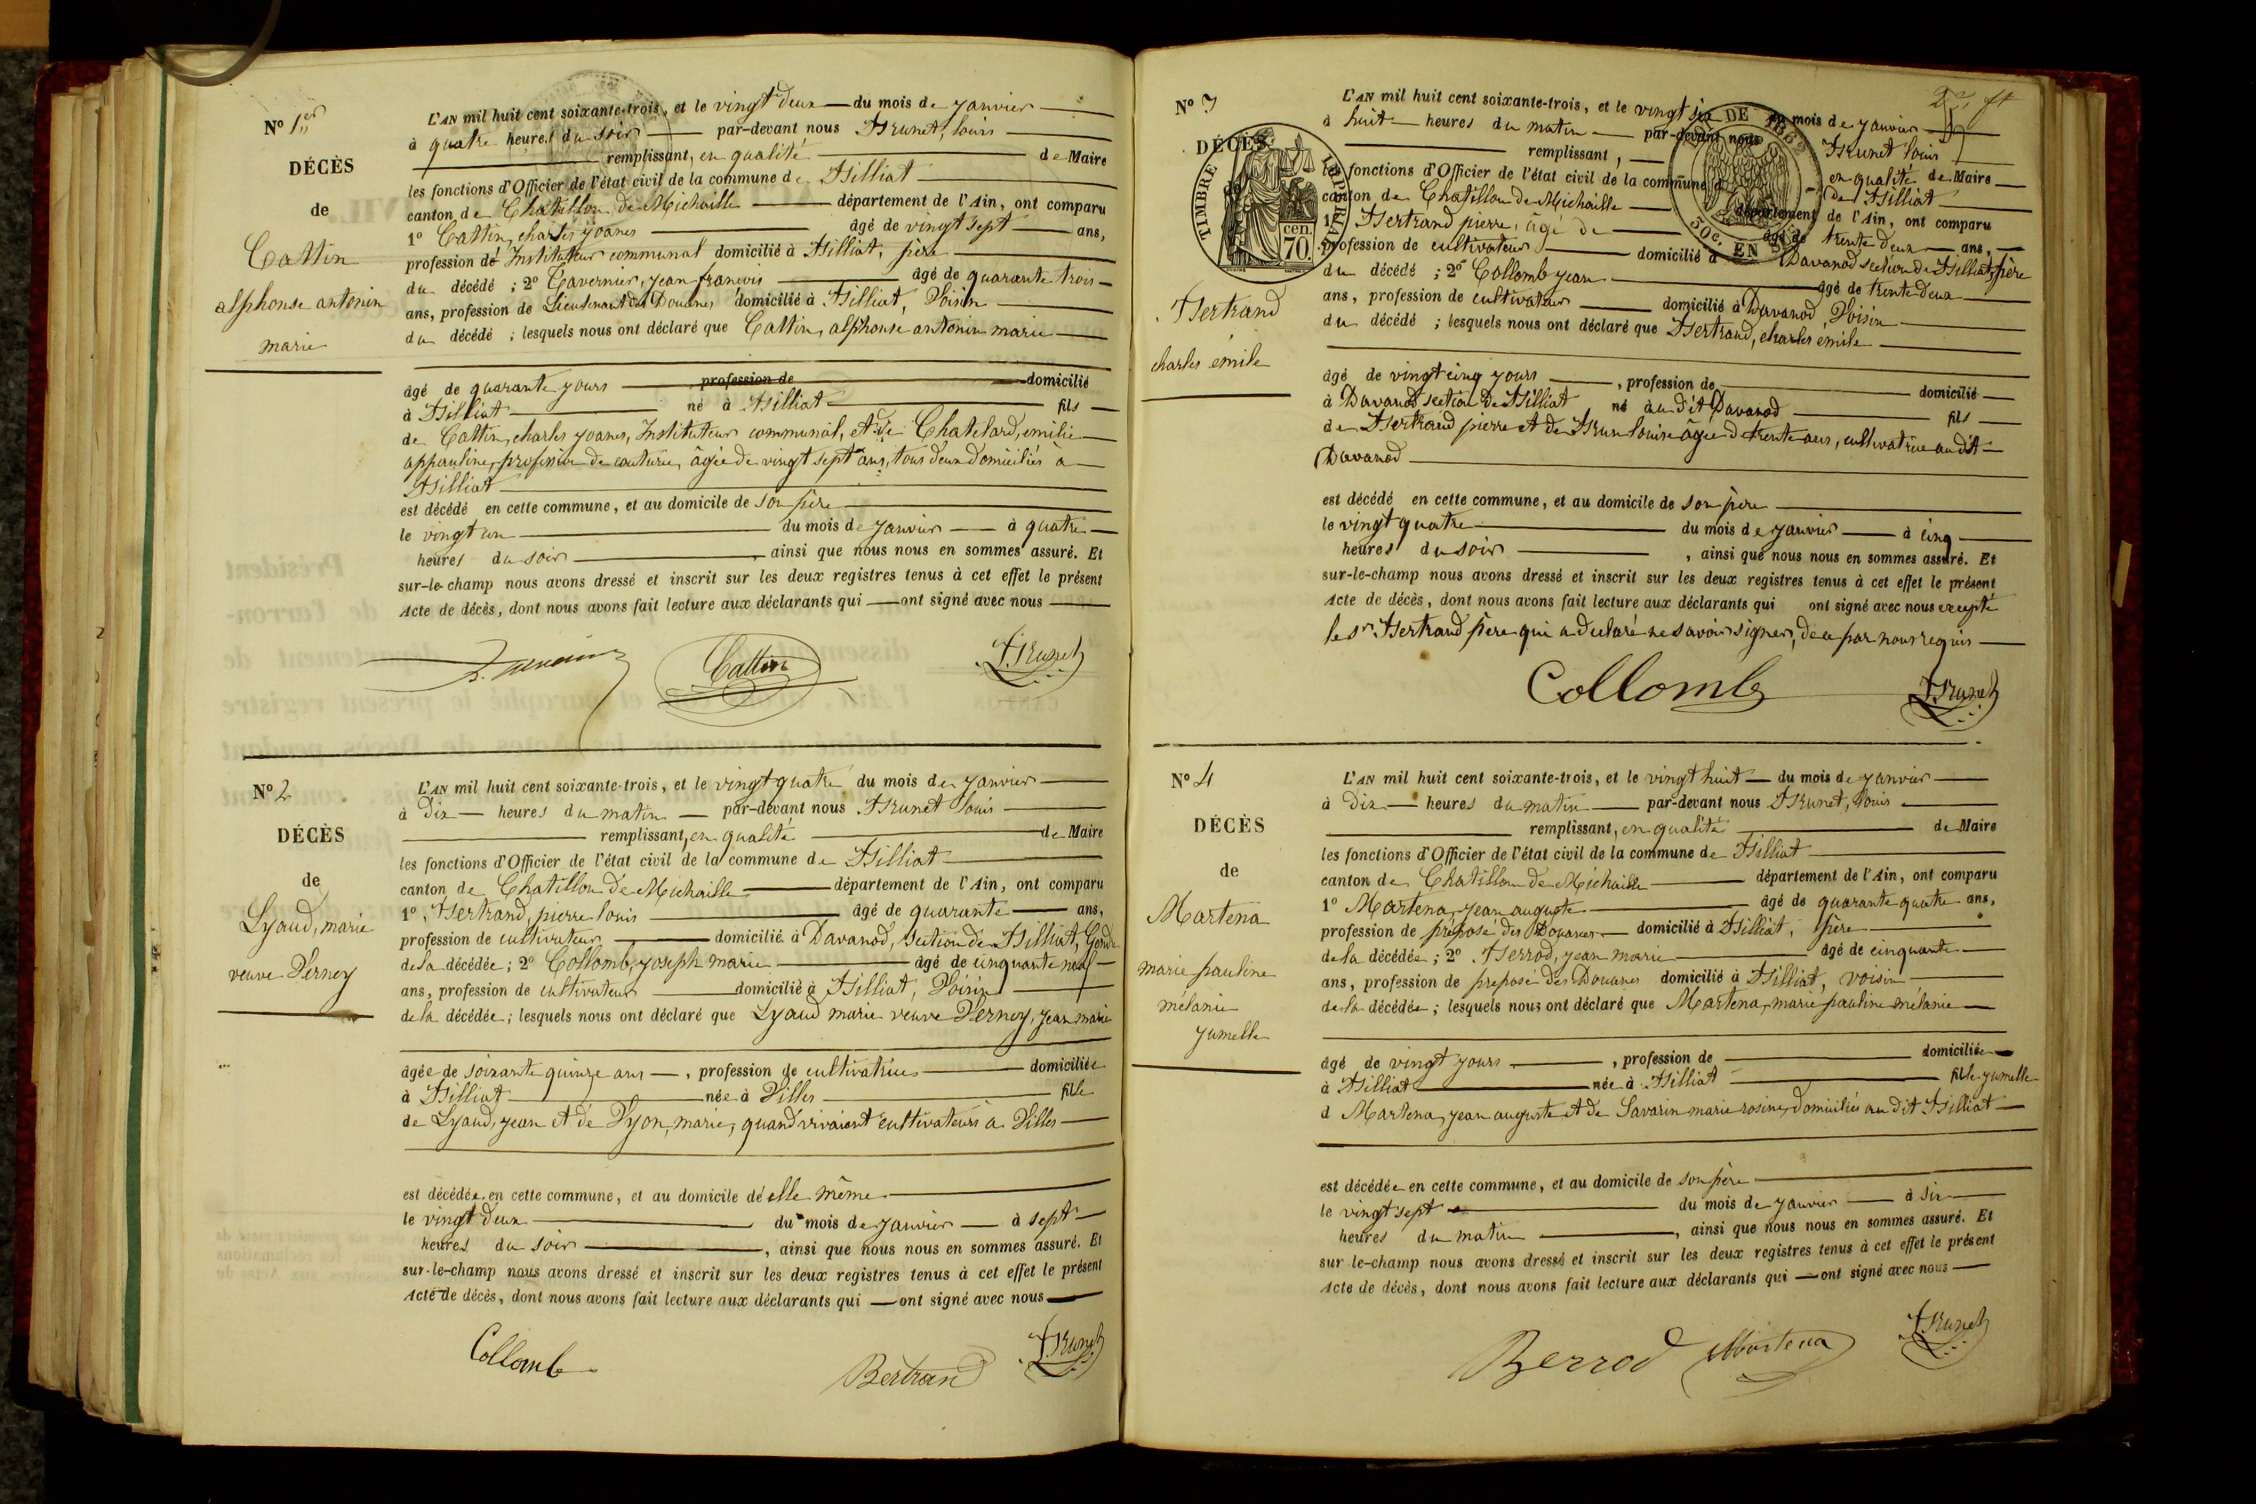 N° 1er
DÉCÈS
de
Cattin
alphonse antonin
marie
L'AN mil huit cent soixante-trois, et le vingt deux du mois de janvier
à quatre heures du soir par-devant nous Brunet, louis
remplissant, en qualité de Maire
les fonctions d'Officier de l'état civil de la commune de Billiat
canton de Chatillon de Michaille département de l'Ain, ont comparu
1° Cattin, charles joanes âgé de vingt sept ans,
profession de Instituteur communal domicilié à Billiat, père
du décédé ; 2° Tavernier, jean françois âgé de quarante trois
ans, profession de Lieutenant des Douanes domicilié à Billiat, Voisin
du décédé ; lesquels nous ont déclaré que Cattin, alphonse antonin marie
âgé de quarante jours profession de domicilié
à Billiat né à Billiat fils
de Cattin, charles joanes, Instituteur communal, et de Chatelard, emilie
appauline, profession de couture, âgée de vingt sept ans, tous deux domiciliés à
Billiat
est décédé en cette commune, et au domicile de son père
le vingt un du mois de janvier à quatre
heures du soir, ainsi que nous nous en sommes assuré. Et
sur-le-champ nous avons dressé et inscrit sur les deux registres tenus à cet effet le présent
Acte de décès, dont nous avons fait lecture aux déclarants qui ont signé avec nous
Cattin Brunet
N° 2
DÉCÈS
de
Lyaud, marie
veuve Verney
L'AN mil huit cent soixante-trois, et le vingt quatre du mois de janvier
à dix heures du matin par-devant nous Brunet louis
remplissant, en qualité de Maire
les fonctions d'Officier de l'état civil de la commune de Billiat
canton de Chatillon de Michaille département de l'Ain, ont comparu
1° Bertrand, pierre louis âgé de quarante ans,
profession de cultivateur domicilié à Davanod, section de Billiat, Gendre
de la décédée ; 2° Collomb, joseph marie âgé de cinquante neuf
ans, profession de cultivateur domicilié à Billiat, Voisin
de la décédée ; lesquels nous ont déclaré que Lyaud marie veuve Verney, jean marie
âgée de soixante quinze ans, profession de cultivatrice domiciliée
à Billiat née à Villes fille
de Lyaud, jean et de Dyon, marie, quand vivaient cultivateurs à Villes
est décédée en cette commune, et au domicile de elle même
le vingt deux du mois de janvier à sept
heures du soir, ainsi que nous nous en sommes assuré. Et
sur-le-champ nous avons dressé et inscrit sur les deux registres tenus à cet effet le présent
Acte de décès, dont nous avons fait lecture aux déclarants qui ont signé avec nous
Collomb Bertrand Brunet
N° 3
DÉCÈS
de
TIMBRE IMPÉRIAL
70 cen.
Bertrand
charles émile
DE 1862
50c. EN SUS
L'AN mil huit cent soixante-trois, et le vingt six du mois de janvier
à huit heures du matin par-devant nous Brunet louis
remplissant, en qualité de Maire
les fonctions d'Officier de l'état civil de la commune de Billiat
canton de Chatillon de Michaille département de l'Ain, ont comparu
1° Bertrand pierre, âgé de âgé de trente deux ans,
profession de cultivateur domicilié à Davanod section de Billiat, père
du décédé ; 2° Collomb jean âgé de trente deux
ans, profession de cultivateur domicilié à Davanod, Voisin
du décédé ; lesquels nous ont déclaré que Bertrand, charles émile
âgé de vingt cinq jours, profession de domicilié
à Davanod section de Billiat né au dit Davanod fils
de Bertrand pierre et de Brun louise âgée de trente ans, cultivatrice au dit
Davanod
est décédé en cette commune, et au domicile de son père
le vingt quatre du mois de janvier à cinq
heures du soir, ainsi que nous nous en sommes assuré. Et
sur-le-champ nous avons dressé et inscrit sur les deux registres tenus à cet effet le présent
Acte de décès, dont nous avons fait lecture aux déclarants qui ont signé avec nous excepté
le sr Bertrand père qui a déclaré ne savoir signer, de ce par nous requis
Collomb Brunet
N° 4
DÉCÈS
de
Martena
marie pauline
mélanie
jumelle
L'AN mil huit cent soixante-trois, et le vingt huit du mois de janvier
à dix heures du matin par-devant nous Brunet, louis
remplissant, en qualité de Maire
les fonctions d'Officier de l'état civil de la commune de Billiat
canton de Chatillon de Michaille département de l'Ain, ont comparu
1° Martena, jean auguste âgé de quarante quatre ans,
profession de préposé des Douanes domicilié à Billiat, père
de la décédée ; 2° Berrod, jean marie âgé de cinquante
ans, profession de préposé des Douanes domicilié à Billiat, voisin
de la décédée ; lesquels nous ont déclaré que Martena, marie pauline mélanie
âgé de vingt jours, profession de domiciliée
à Billiat née à Billiat fille jumelle
d Martena, jean auguste et de Savarin marie rosine, domiciliés au dit Billiat
est décédée en cette commune, et au domicile de son père
le vingt sept du mois de janvier à six
heures du matin, ainsi que nous nous en sommes assuré. Et
sur-le-champ nous avons dressé et inscrit sur les deux registres tenus à cet effet le présent
Acte de décès, dont nous avons fait lecture aux déclarants qui ont signé avec nous
Berrod Martena Brunet